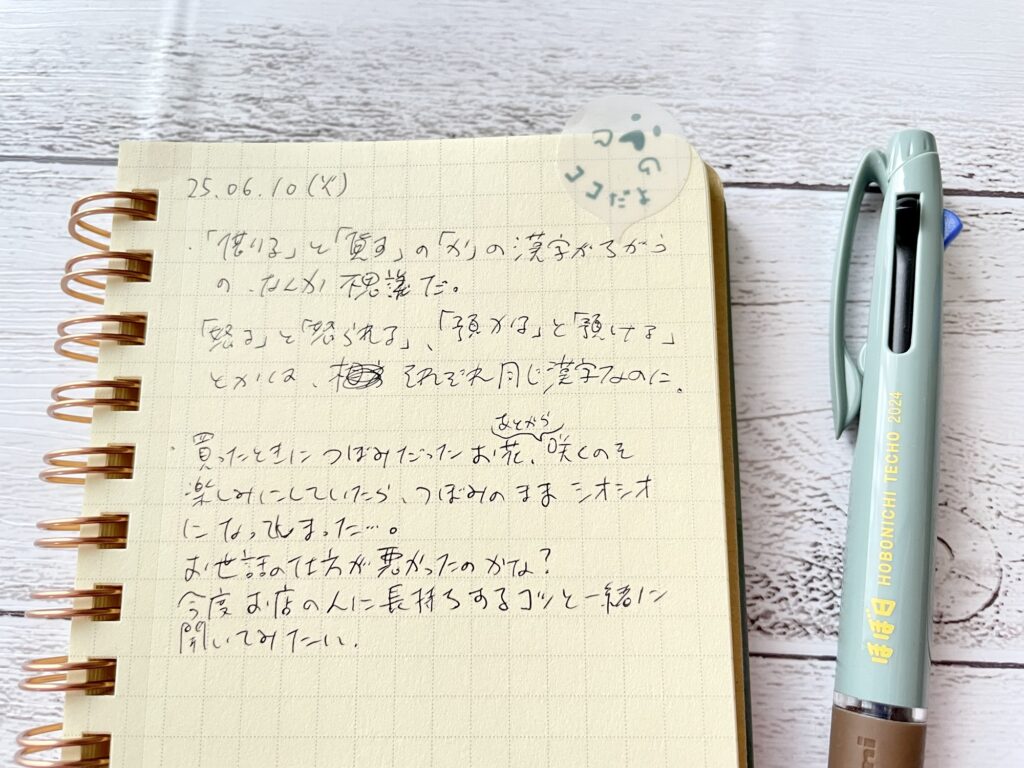 25.06.10(火)
・「借りる」と「貸す」の「か」の漢字がちがう
の、なんか不思議だ。
「怒る」と「怒られる」、「預かる」と「預ける」
とかは、それぞれ同じ漢字なのに。
あとから
・買ったときにつぼみだったお花、咲くのを
楽しみにしていたら、つぼみのままシオシオ
になってしまった…。
お世話の仕方が悪かったのかな?
今度お店の人に長持ちするコツと一緒に
聞いてみたい。
ココだよ
HOBONICHI TECHO 2024
ほぼ日